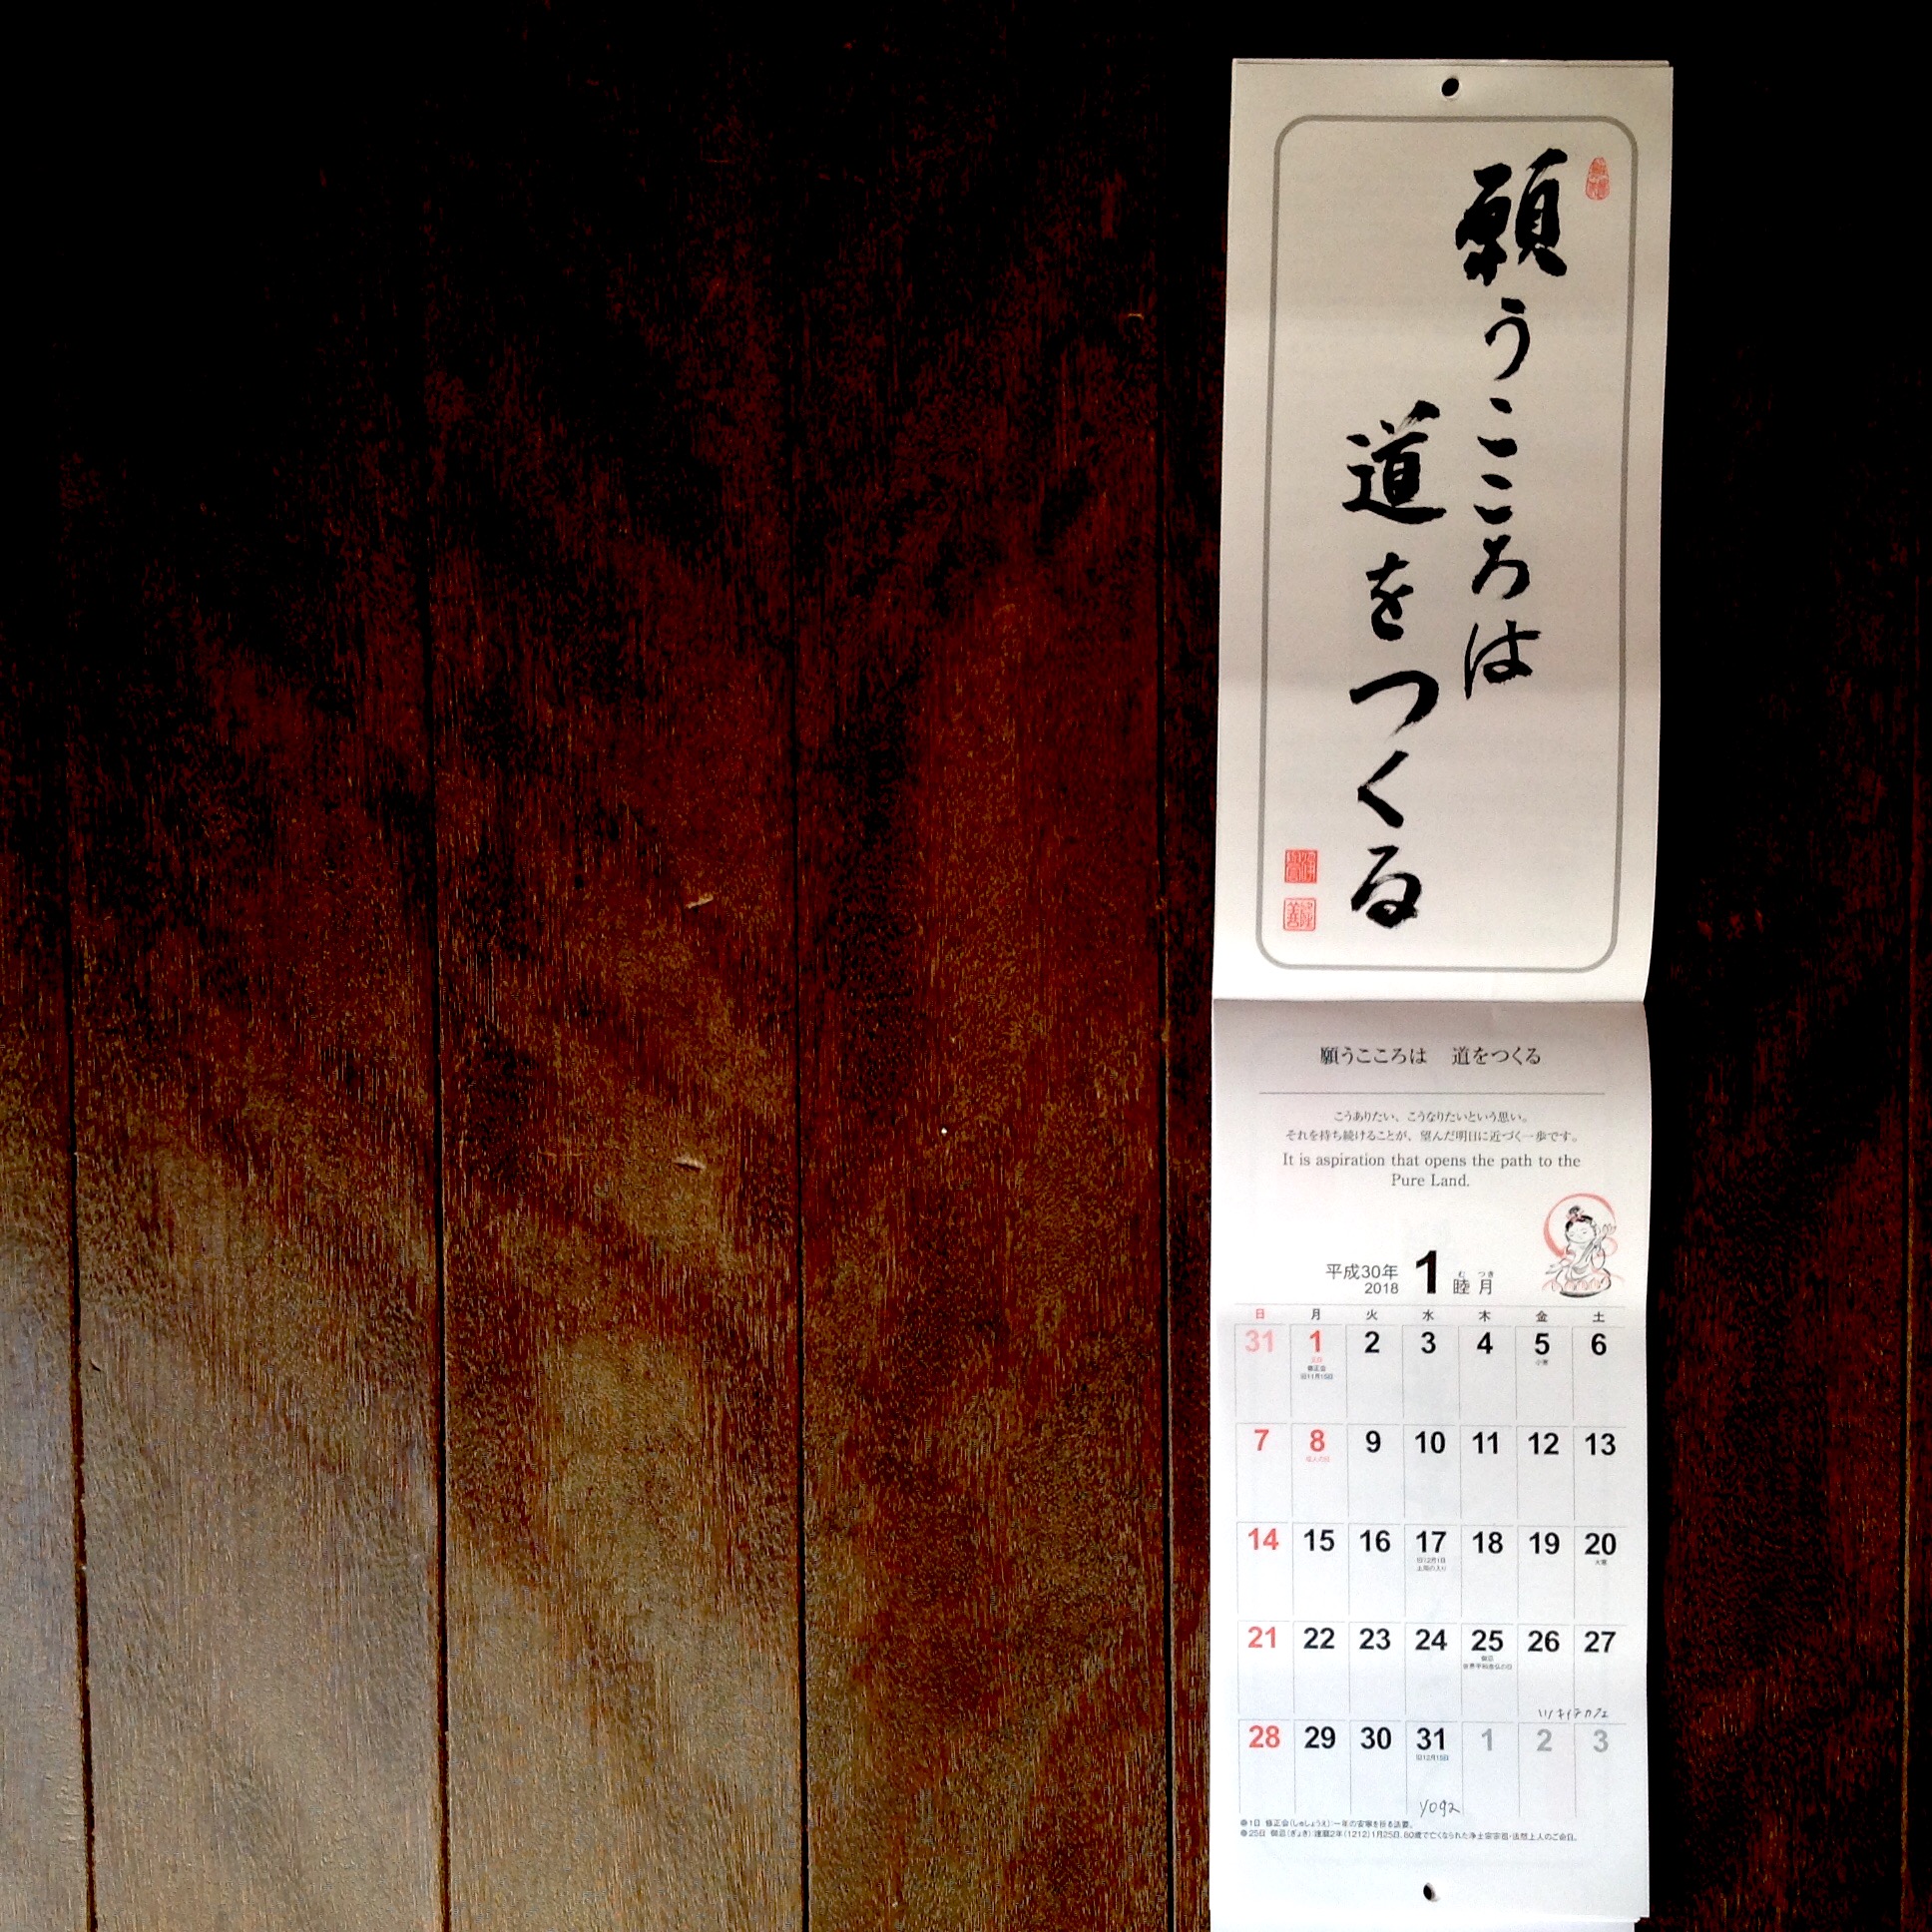 願うこころは
道をつくる
願うこころは　道をつくる
こうありたい、こうなりたいという思い。
それを持ち続けることが、望んだ明日に近づく一歩です。
It is aspiration that opens the path to the
Pure Land.
平成30年
2018
1
むつき
睦月
日 月 火 水 木 金 土
31 1 2 3 4 5 6
元日
修正会
旧11月15日
小寒
7 8 9 10 11 12 13
成人の日
14 15 16 17 18 19 20
旧12月1日
土用の入り
大寒
21 22 23 24 25 26 27
御忌
世界平和念仏の日
28 29 30 31 1 2 3
旧12月15日
●1日 修正会(しゅしょうえ):一年の安寧を祈る法要。
●25日 御忌(ぎょき):建暦2年(1212)1月25日、80歳で亡くなられた浄土宗宗祖・法然上人のご命日。